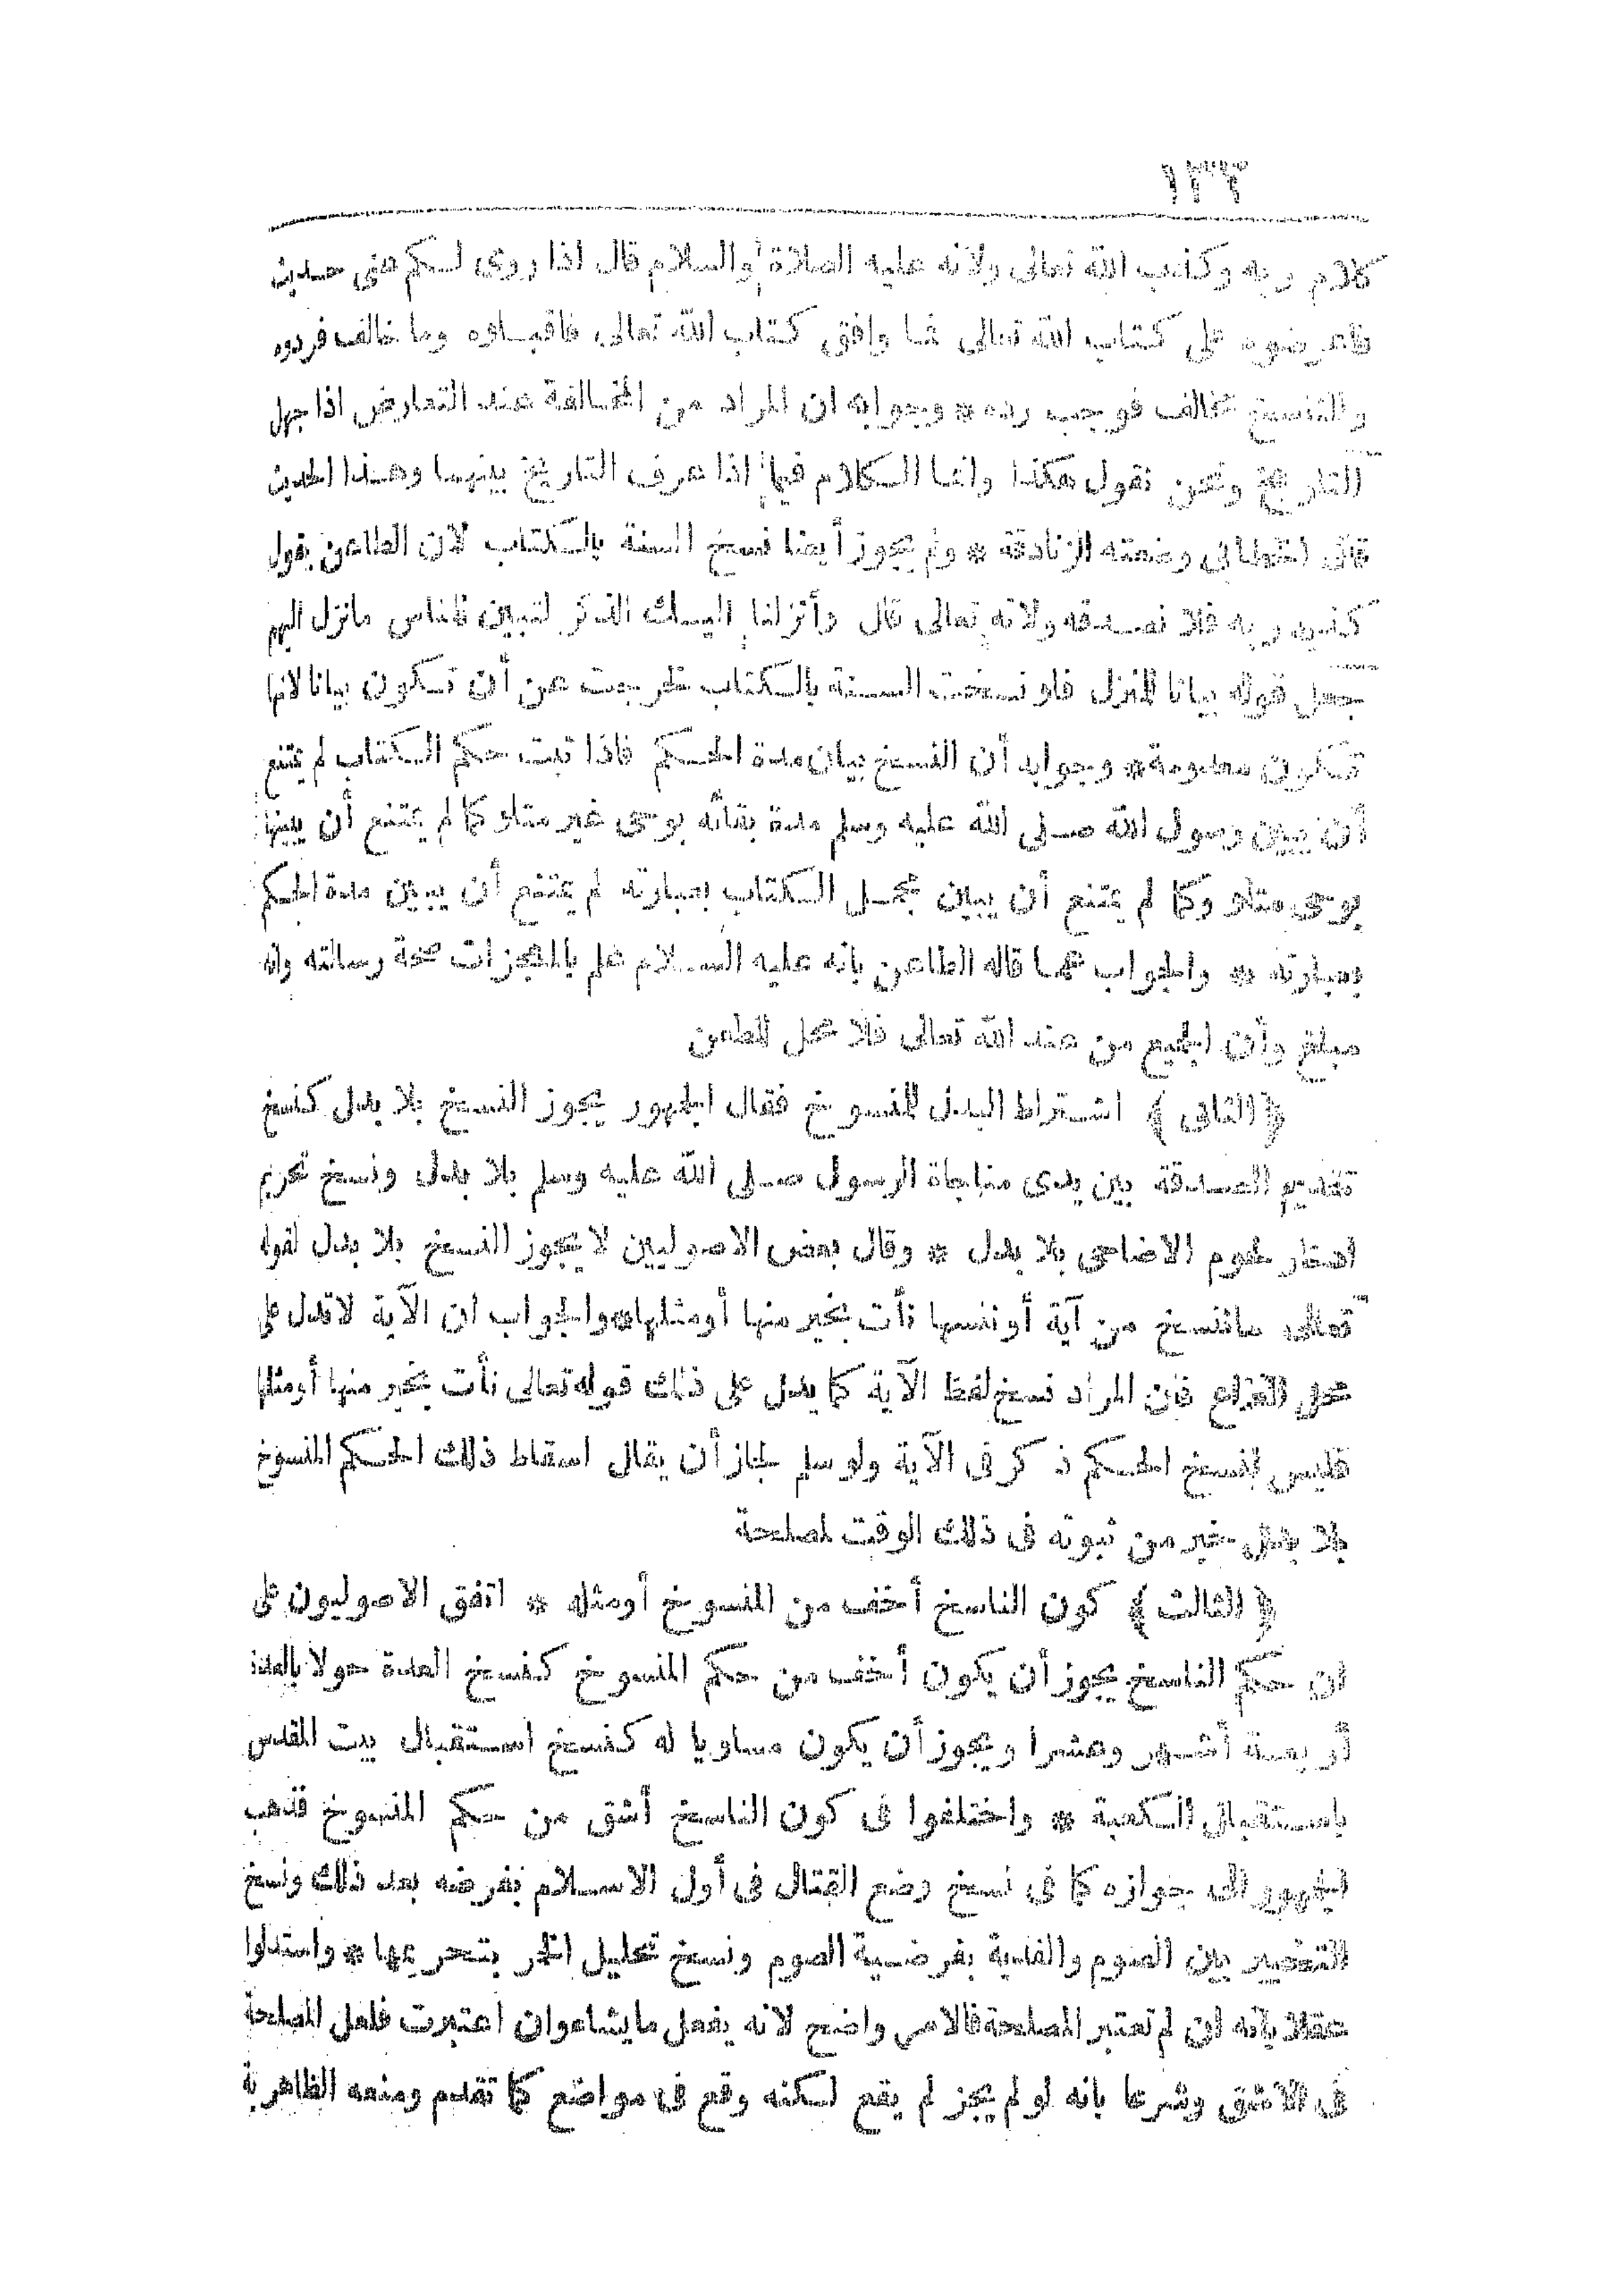 ١٣٣
كلام ربه وكذب الله تعالى ولانه عليه الصلاة والسلام قال اذا روى لكم عنى حديث
فاعرضوه على كتاب الله تعالى فما وافق كتاب الله تعالى فاقبلوه وما خالف فردوه
والناسخ مخالف فوجب رده * وجوابه ان المراد من المخالفة عند التعارض اذا جهل
التاريخ ونحن نقول هكذا وانما الكلام فيما اذا عرف التاريخ بينهما وهذا الحديث
قال الخطابى وضعته الزنادقة * ولم يجوز أيضا نسخ السنة بالكتاب لان الطاعن يقول
كذبه ربه فلا نصدقه ولانه تعالى قال وأنزلنا اليك الذكر لتبين للناس مانزل اليهم
جعل قوله بيانا للمنزل فلو نسخت السنة بالكتاب لخرجت عن أن تكون بيانا لانها
تكون معدومة * وجوابه أن النسخ بيان مدة الحكم فاذا ثبت حكم الكتاب لم يمتنع
أن يبين رسول الله صلى الله عليه وسلم مدة بقائه بوحى غير متلو كما لم يمتنع أن يبينها
بوحى متلو وكما لم يمتنع أن يبين مجمل الكتاب بعبارته لم يمتنع أن يبين مدة الحكم
بعبارته * والجواب عما قاله الطاعن بانه عليه السلام علم بالمعجزات صحة رسالته وانه
مبلغ وأن الجميع من عند الله تعالى فلا محل للطعن
﴿ الثانى ﴾ اشتراط البدل للمنسوخ فقال الجمهور يجوز النسخ بلا بدل كنسخ
تقديم الصدقة بين يدى مناجاة الرسول صلى الله عليه وسلم بلا بدل ونسخ تحريم
ادخار لحوم الاضاحى بلا بدل * وقال بعض الاصوليين لا يجوز النسخ بلا بدل لقوله
تعالى ماننسخ من آية أو ننسها نأت بخير منها أو مثلها * والجواب ان الآية لا تدل على
محل النزاع فان المراد نسخ لفظ الآية كما يدل على ذلك قوله تعالى نأت بخير منها أو مثلها
فليس لنسخ الحكم ذكر فى الآية ولو سلم لجاز أن يقال اسقاط ذلك الحكم المنسوخ
بلا بدل خير من ثبوته فى ذلك الوقت لمصلحة
﴿ الثالث ﴾ كون الناسخ أخف من المنسوخ أومثله * اتفق الاصوليون على
ان حكم الناسخ يجوز أن يكون أخف من حكم المنسوخ كنسخ العدة حولا بالعدة
أربعة أشهر وعشرا ويجوز أن يكون مساويا له كنسخ استقبال بيت المقدس
باستقبال الكعبة * واختلفوا فى كون الناسخ أشق من حكم المنسوخ فذهب
الجمهور الى جوازه كما فى نسخ وضع القتال فى أول الاسلام بفرضه بعد ذلك ونسخ
التخيير بين الصوم والفدية بفرضية الصوم ونسخ تحليل الخمر بتحريمها * واستدلوا
عقلا بانه ان لم تعتبر المصلحة فالامر واضح لانه يفعل مايشاء وان اعتبرت فلعل المصلحة
فى الاشق وشرعا بانه لو لم يجز لم يقع لكنه وقع فى مواضع كما تقدم ومنعه الظاهرية